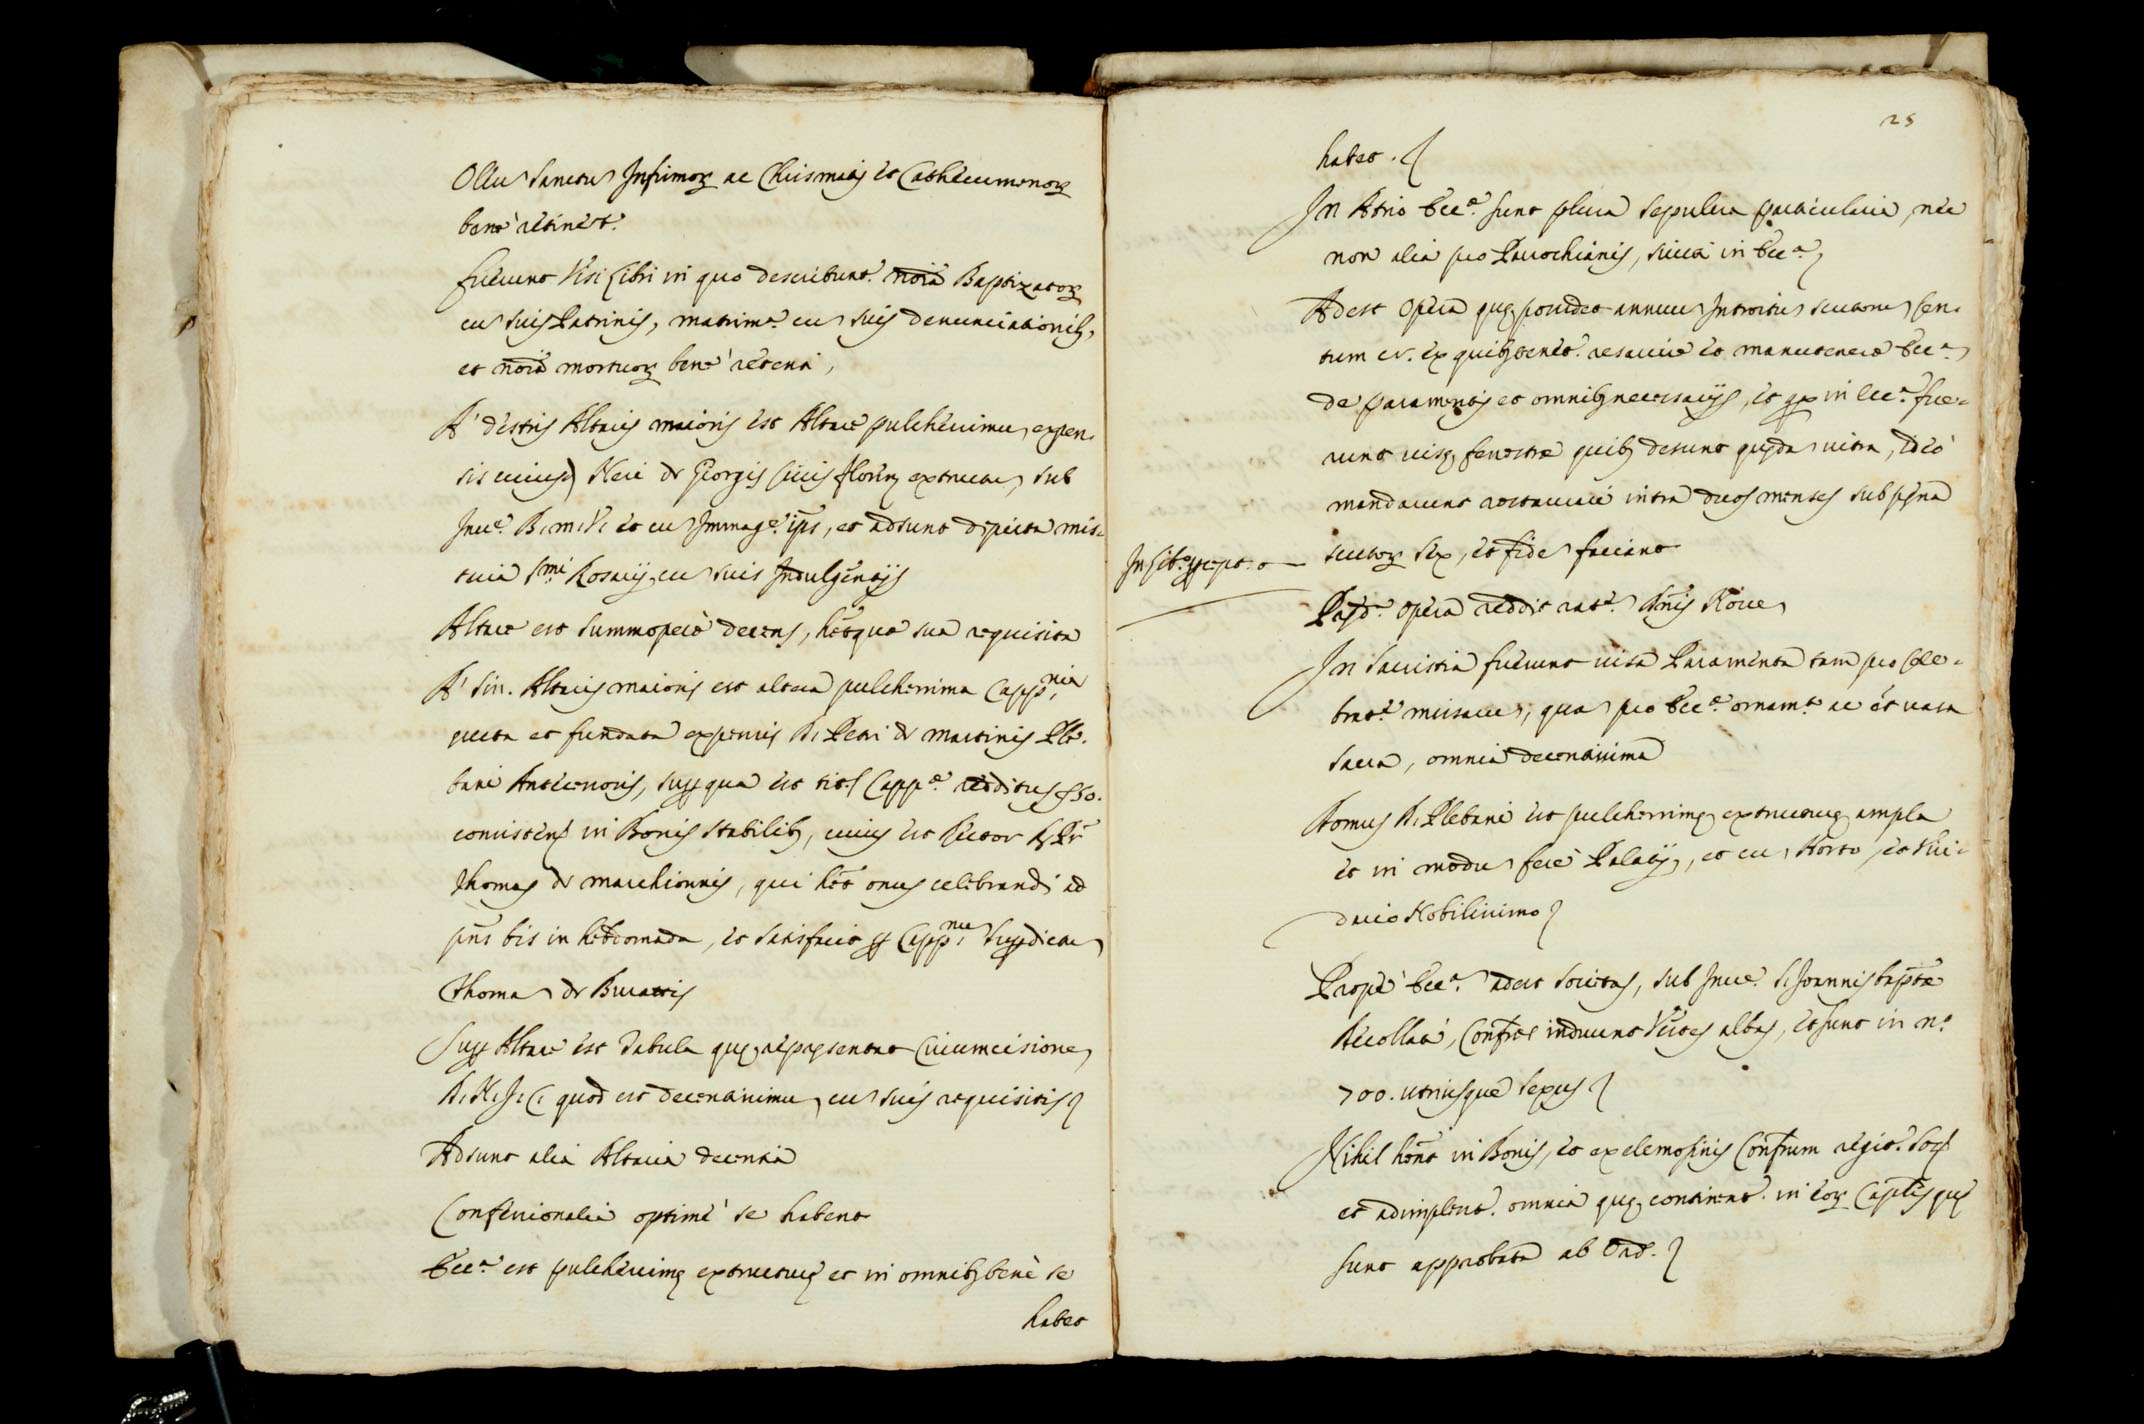 Oleu Sanctu Infirmor ac Chrismatis et Cathecumenor
bene retinet.
fuerunt Visi Libri in quo describunt. noia Baptizator
cu suis Patrinis, matrim.ᵃ cu suis denunciationib,
et noia mortuor bene retenti,
A' destris Altaris maioris est Altare pulcherrimu, expen-
sis cuiusd Neri de Giorgis Civis floren extructu, sub
Invᵉ. B. M. V. et cu Immagᵉ ips, et adsunt depicta mis-
teria Sᵐⁱ Rosarij, cu suis Indulgentijs
Altare est summopere decens, hetque sua requisita
A' Sin. Altaris maioris est altera pulcherrima Capp.ⁿⁱᵃ
recta et fundata expensis R. Petri de Martinis Ple-
bani Antecessoris, supqua est titl Capp.ᵉ redditus 50.
consistens in Bonis stabilib, cuius est Rector R. Pr
Thomas de Marchionnis, qui het onus celebrandi ad
pns bis in hebdomada, et satisfacit p Capp.ⁿᵘ supdictu
Thoma de Burattis
Sup Altare est Tabula que representat Circumcisione,
D. N. J. C. quod est decentissimu, cu suis requisitis
Adsunt alia Altaria decentia
Confessionalia optime se habent
Ecc.ᵃ est pulcherrime extructa et in omnib bene se
habet
25
habet.
In Atrio Ecc.ᵉ sunt plura sepulcra particularia, nec
non alia pro Parochianis, sicca in Ecc.ᵃ
Adest Opera que possidet annuu Introitu scutoru Cen-
tum cr. ex quib tenet. resarcire et manutenere Ecc.ᵃ
de paramentis et omnib necessarijs, et qa in Ecc.ᵃ fue-
runt vise fenestre quib desunt queda vitra, Ideo
mandarunt restaurari intra duos menses sub pena
scutor sex, et fide faciant
Pred.ᵃ Opera reddit rat.ᵉ Dnis Nove
In Sacristia fuerunt visa Paramenta tam pro Cele-
brat.ᵉ missaru, qua pro Ecc.ᵉ ornam.ᵗᵒ ac et vasa
sacra, omnia decentissima
Domus R. Plebani est pulcherrime extructa, ampla
et in modu fere Palatij, et cu Horto, et Viri-
dario Nobilissimo
Prope Ecc.ᵃ adest Societas, sub Invᵉ. S. Joannis bapte
Decollati, Confres induunt Vestes albas, et sunt in n.ᵒ
700. utriusque sexus
Nihil hent in Bonis, et ex elemosinis Confrum regit. Soc
et adimplent. omnia que continent. in eor Captis que
sunt approbata ab Ord.